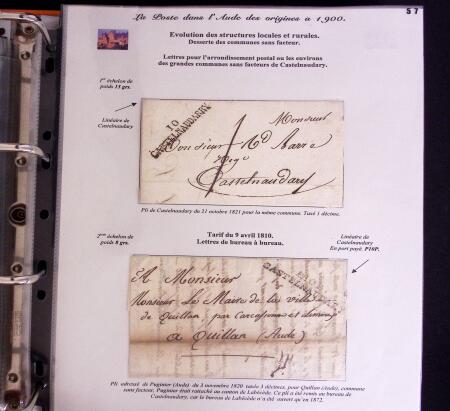 La Poste dans l'Aude des origines à 1900.
57
Evolution des structures locales et rurales.
Desserte des communes sans facteur.
Lettres pour l'arrondissement postal ou les environs
des grandes communes sans facteurs de Castelnaudary.
1er échelon de
poids 15 grs.
Linéaire de
Castelnaudary
10
CASTELNAUDARY
Monsieur
Monsieur Md Barre
Castelnaudary
Pli de Castelnaudary du 21 octobre 1821 pour la même commune. Taxé 1 décime.
2ème échelon de
poids 8 grs.
Tarif du 9 avril 1810.
Lettres de bureau à bureau.
Linéaire de
Castelnaudary
En port payé. P10P.
CASTELNAUDARY
A Monsieur
Monsieur Le Maire de la ville
de Quillan, par Carcassonne et Limoux
a Quillan (Aude)
Pli adressé de Puginier (Aude) du 3 novembre 1820 taxée 3 décimes, pour Quillan (Aude), commune
sans facteur. Puginier était rattaché au canton de Labécède. Ce pli a été remis au bureau de
Castelnaudary, car le bureau de Labécède n'a été ouvert qu'en 1872.